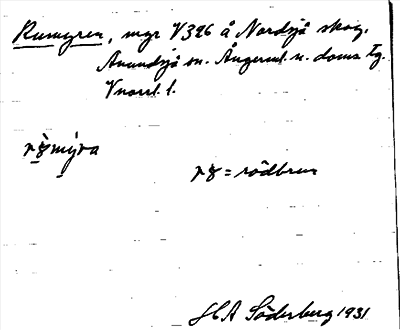 Rumyren, myr V326 å Nordsjö skog,
Anundsjö sn. Ångerml. n. doms Tg.
Vnorrl. l.
mýra
= rödbrun
H A Söderberg 1931